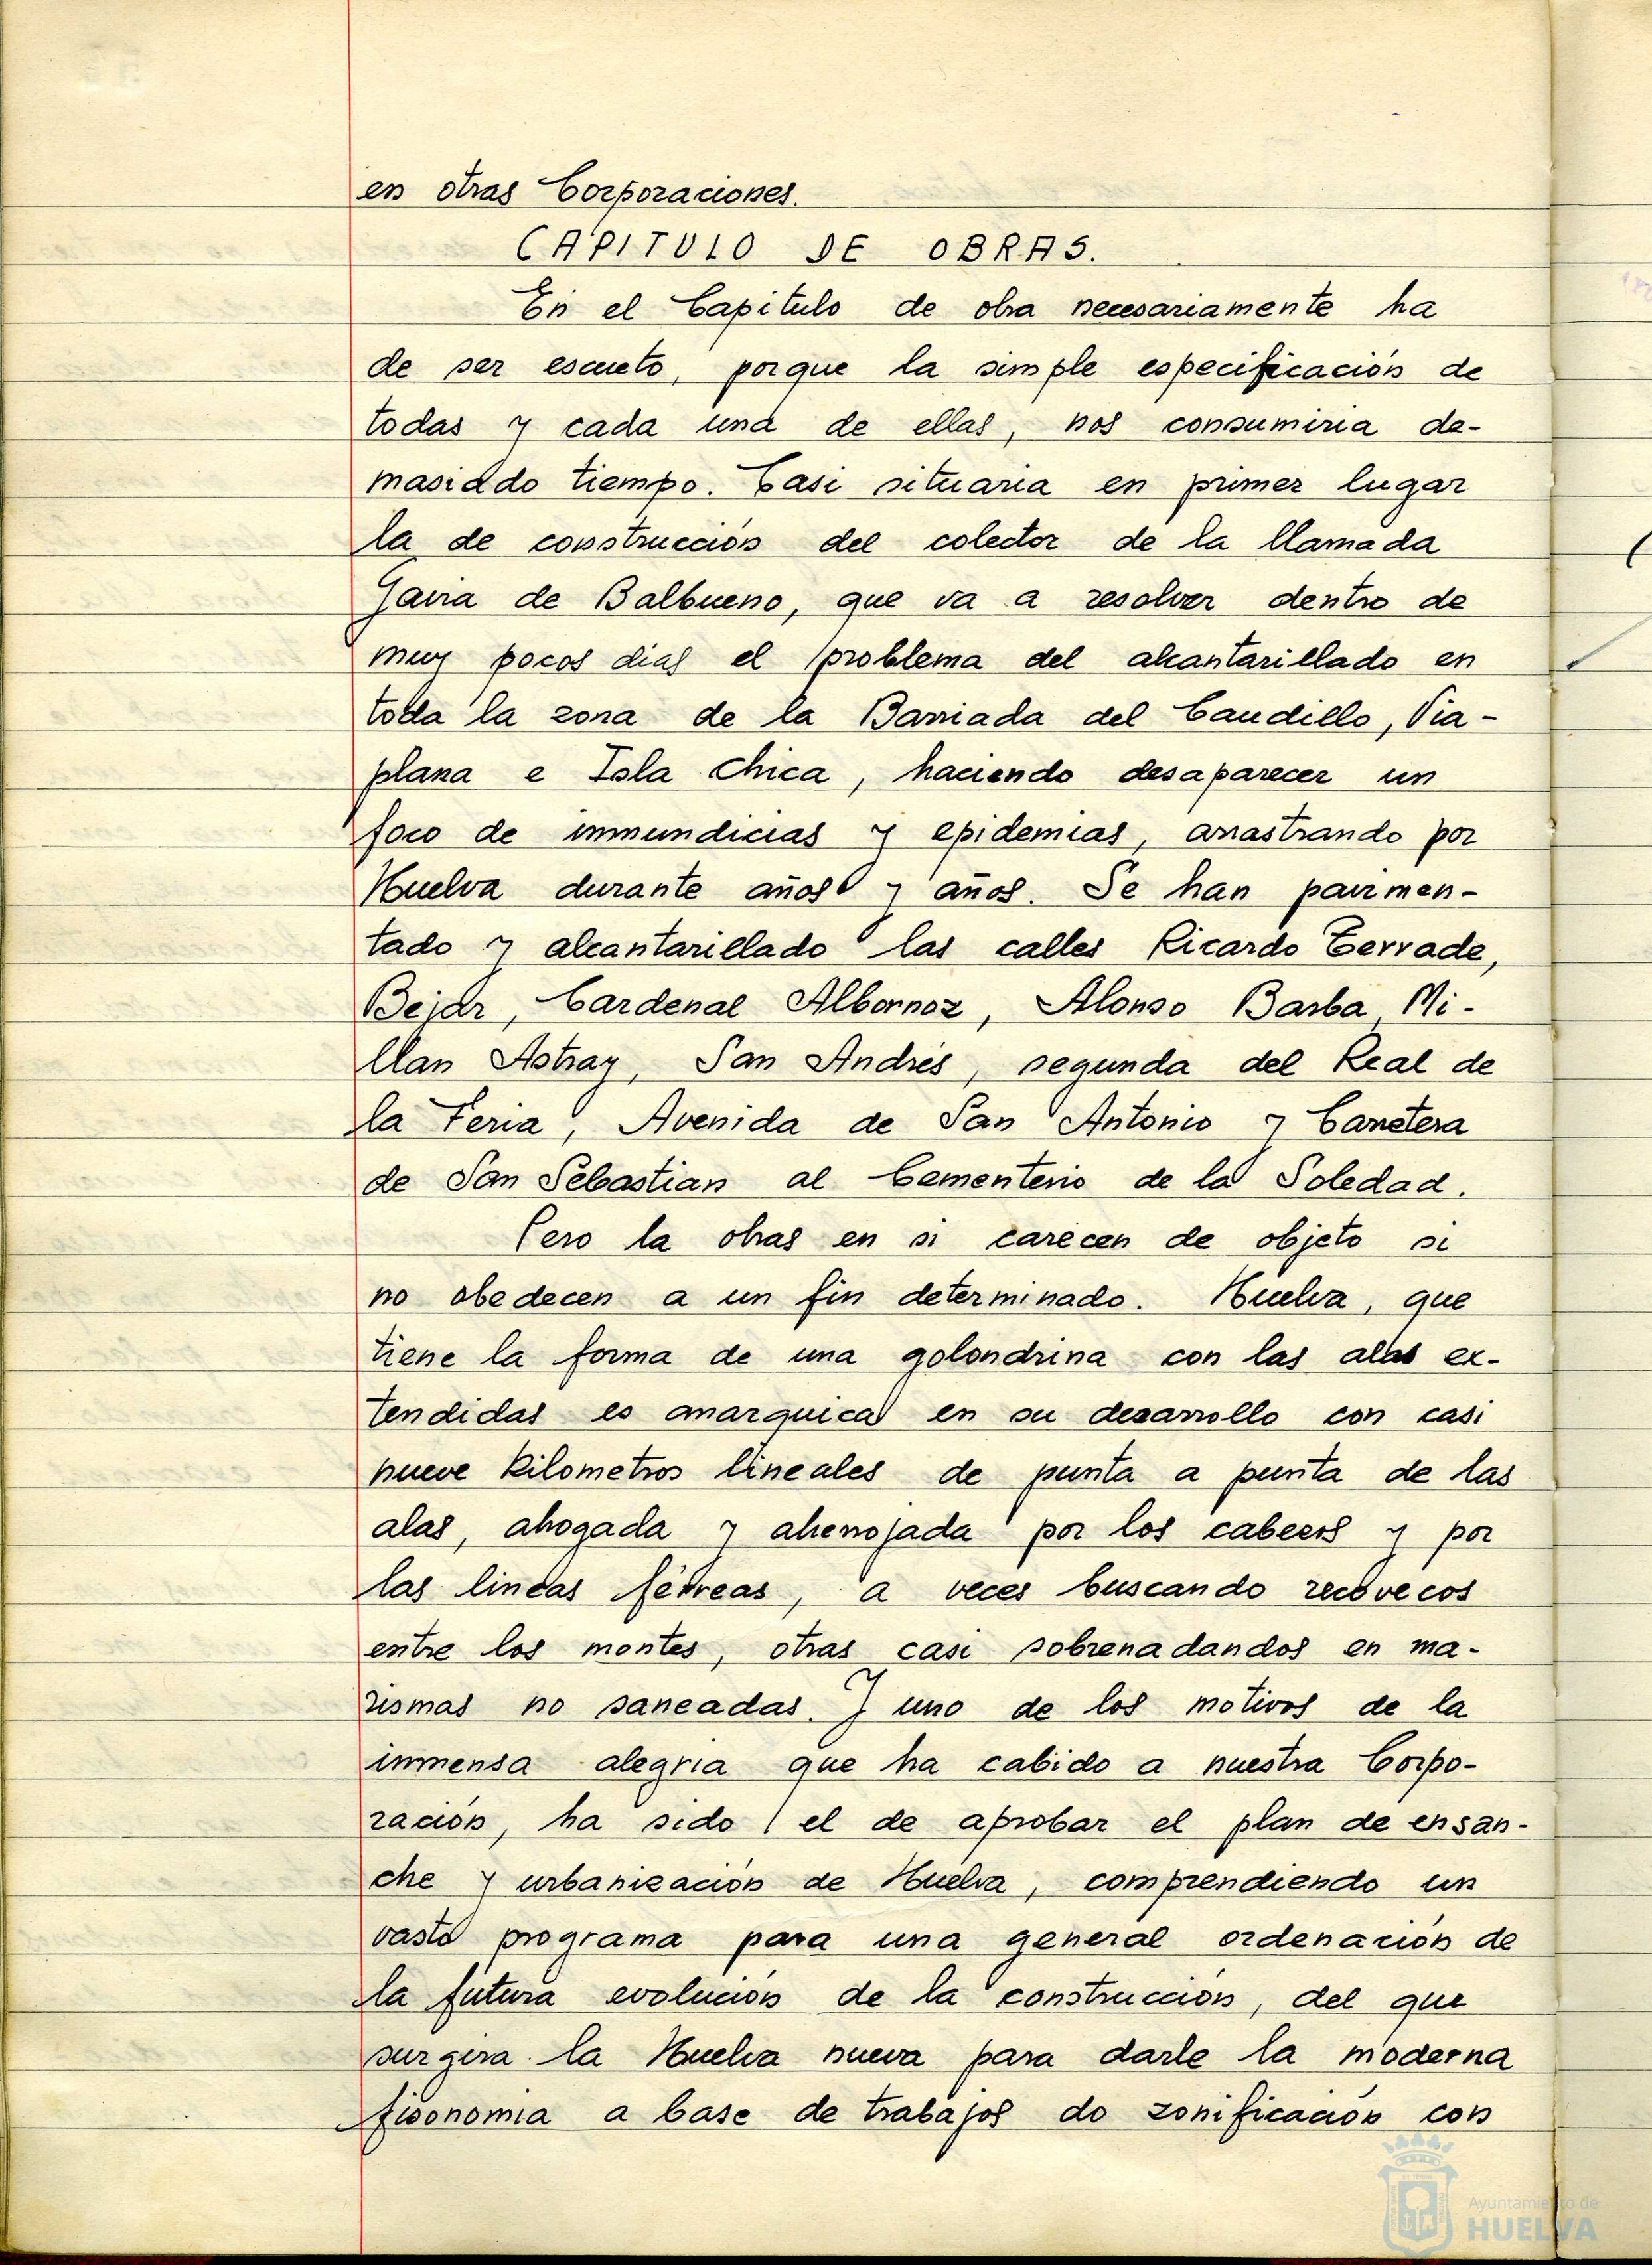 en otras Corporaciones.
CAPITULO DE OBRAS.
En el Capitulo de obra necesariamente ha
de ser escueto, porque la simple especificación de
todas y cada una de ellas, nos consumiria de-
masiado tiempo. Casi situaria en primer lugar
la de construccion del colector de la llamada
Gavia de Balbueno, que va a resolver dentro de
muy pocos dias el problema del alcantarillado en
toda la zona de la Barriada del Caudillo, Via-
plana e Isla Chica, haciendo desaparecer un
foco de inmundicias y epidemias, arrastrando por
Huelva durante años y años. Se han pavimen-
tado y alcantarillado las calles Ricardo Terrade,
Bejar, Cardenal Albornoz, Alonso Barba, Mi-
llan Astray, San Andrés, segunda del Real de
la Feria, Avenida de San Antonio y Carretera
de San Sebastian al Cementerio de la Soledad.
Pero la obras en si carecen de objeto si
no obedecen a un fin determinado. Huelva, que
tiene la forma de una golondrina con las alas ex-
tendidas es anarquica en su desarrollo con casi
nueve kilometros lineales de punta a punta de las
alas, ahogada y aherrojada por los cabezos y por
las lineas férreas, a veces buscando recovecos
entre los montes, otras casi sobrenadandos en ma-
rismas no saneadas. Y uno de los motivos de la
inmensa alegria que ha cabido a nuestra Corpo-
ración, ha sido el de aprobar el plan de ensan-
che y urbanización de Huelva, comprendiendo un
vasto programa para una general ordenación de
la futura evolución de la construccion, del que
surgira la Huelva nueva para darle la moderna
fisonomia a base de trabajos do zonificación con
Ayuntamiento de
HUELVA